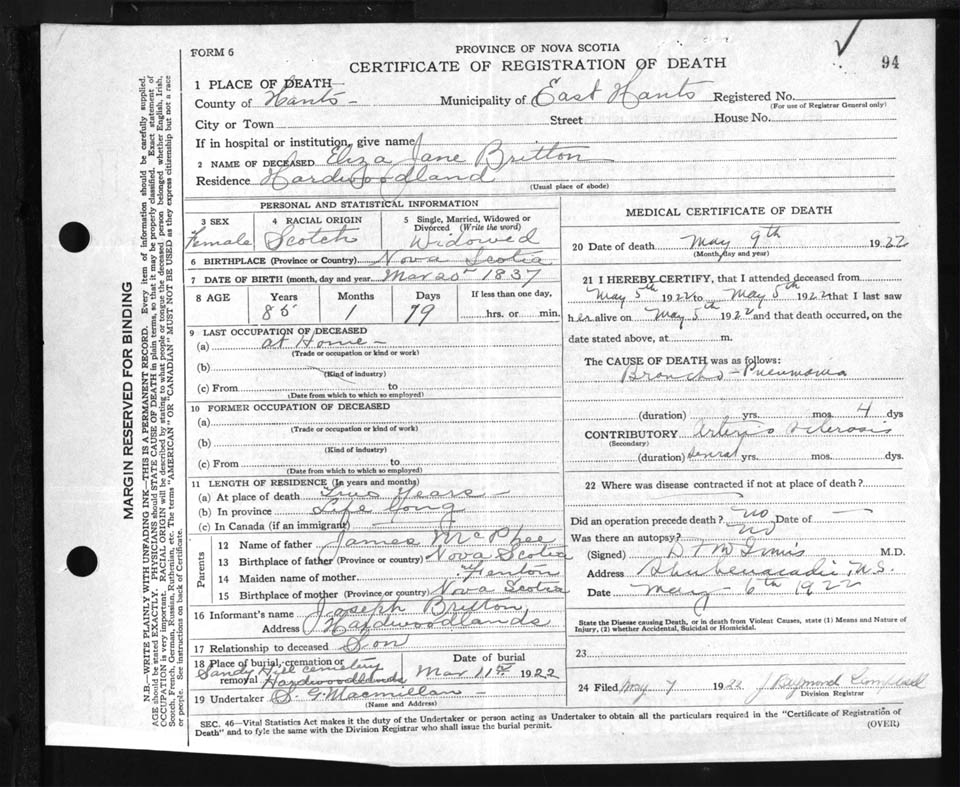 94
FORM 6
PROVINCE OF NOVA SCOTIA
CERTIFICATE OF REGISTRATION OF DEATH
1 PLACE OF DEATH—
County of Hants - Municipality of East Hants Registered No.
(For use of Registrar General only)
City or Town Street House No.
If in hospital or institution, give name
2 NAME OF DECEASED Eliza Jane Britton
Residence Hardwoodland
(Usual place of abode)
PERSONAL AND STATISTICAL INFORMATION
3 SEX 4 RACIAL ORIGIN 5 Single, Married, Widowed or Divorced (Write the word)
Female Scotch Widowed
6 BIRTHPLACE (Province or Country) Nova Scotia
7 DATE OF BIRTH (month, day and year) Mar 20 1837
8 AGE Years Months Days If less than one day,
85 1 19 hrs. or min.
9 LAST OCCUPATION OF DECEASED
(a) at Home -
(Trade or occupation or kind or work)
(b)
(Kind of industry)
(c) From to
(Date from which to which so employed)
10 FORMER OCCUPATION OF DECEASED
(a)
(Trade or occupation or kind of work)
(b)
(Kind of industry)
(c) From to
(Date from which to which so employed)
11 LENGTH OF RESIDENCE (In years and months)
(a) At place of death Years -
(b) In province Life long
(c) In Canada (if an immigrant)
Parents
12 Name of father James McPhee
13 Birthplace of father (Province or country) Nova Scotia
14 Maiden name of mother Fenton
15 Birthplace of mother (Province or country) Nova Scotia
16 Informant's name Joseph Britton
Address Hardwoodlands
17 Relationship to deceased Son
18 Place of burial, cremation or removal Sandy Hill Cemetery Hardwoodlands
Date of burial Mar 11 1922
19 Undertaker S. G. Macmillan -
(Name and Address)
MEDICAL CERTIFICATE OF DEATH
20 Date of death May 9th 1922
(Month, day and year)
21 I HEREBY CERTIFY, that I attended deceased from
May 5th 1922 to May 5th 1922 that I last saw
her alive on May 5th 1922 and that death occurred, on the
date stated above, at m.
The CAUSE OF DEATH was as follows:
Broncho - Pneumonia
(duration) yrs. mos. 4 dys
CONTRIBUTORY Arterio Sclerosis
(Secondary)
(duration) several yrs. mos. dys.
22 Where was disease contracted if not at place of death?
Did an operation precede death? no Date of —
Was there an autopsy? no
(Signed) M.D.
Address Shubenacadie, N.S.
Date May 6th 1922
State the Disease causing Death, or in death from Violent Causes, state (1) Means and Nature of
Injury, (2) whether Accidental, Suicidal or Homicidal.
23
24 Filed May 7 1922 J Raymond
Division Registrar
SEC. 46—Vital Statistics Act makes it the duty of the Undertaker or person acting as Undertaker to obtain all the particulars required in the "Certificate of Registration of
Death" and to fyle the same with the Division Registrar who shall issue the burial permit.
(OVER)
MARGIN RESERVED FOR BINDING
N.B.—WRITE PLAINLY WITH UNFADING INK—THIS IS A PERMANENT RECORD. Every item of information should be carefully supplied.
AGE should be stated EXACTLY. PHYSICIANS should STATE CAUSE OF DEATH in plain terms, so that it may be properly classified. Exact statement of
OCCUPATION is very important. RACIAL ORIGIN will be described by stating to what people or tongue the deceased person belonged whether English, Irish,
Scotch, French, German, Russian, Ruthenian, etc. The terms "AMERICAN" OR "CANADIAN" MUST NOT BE USED as they express citizenship but not a race
or people. See instructions on back of Certificate.